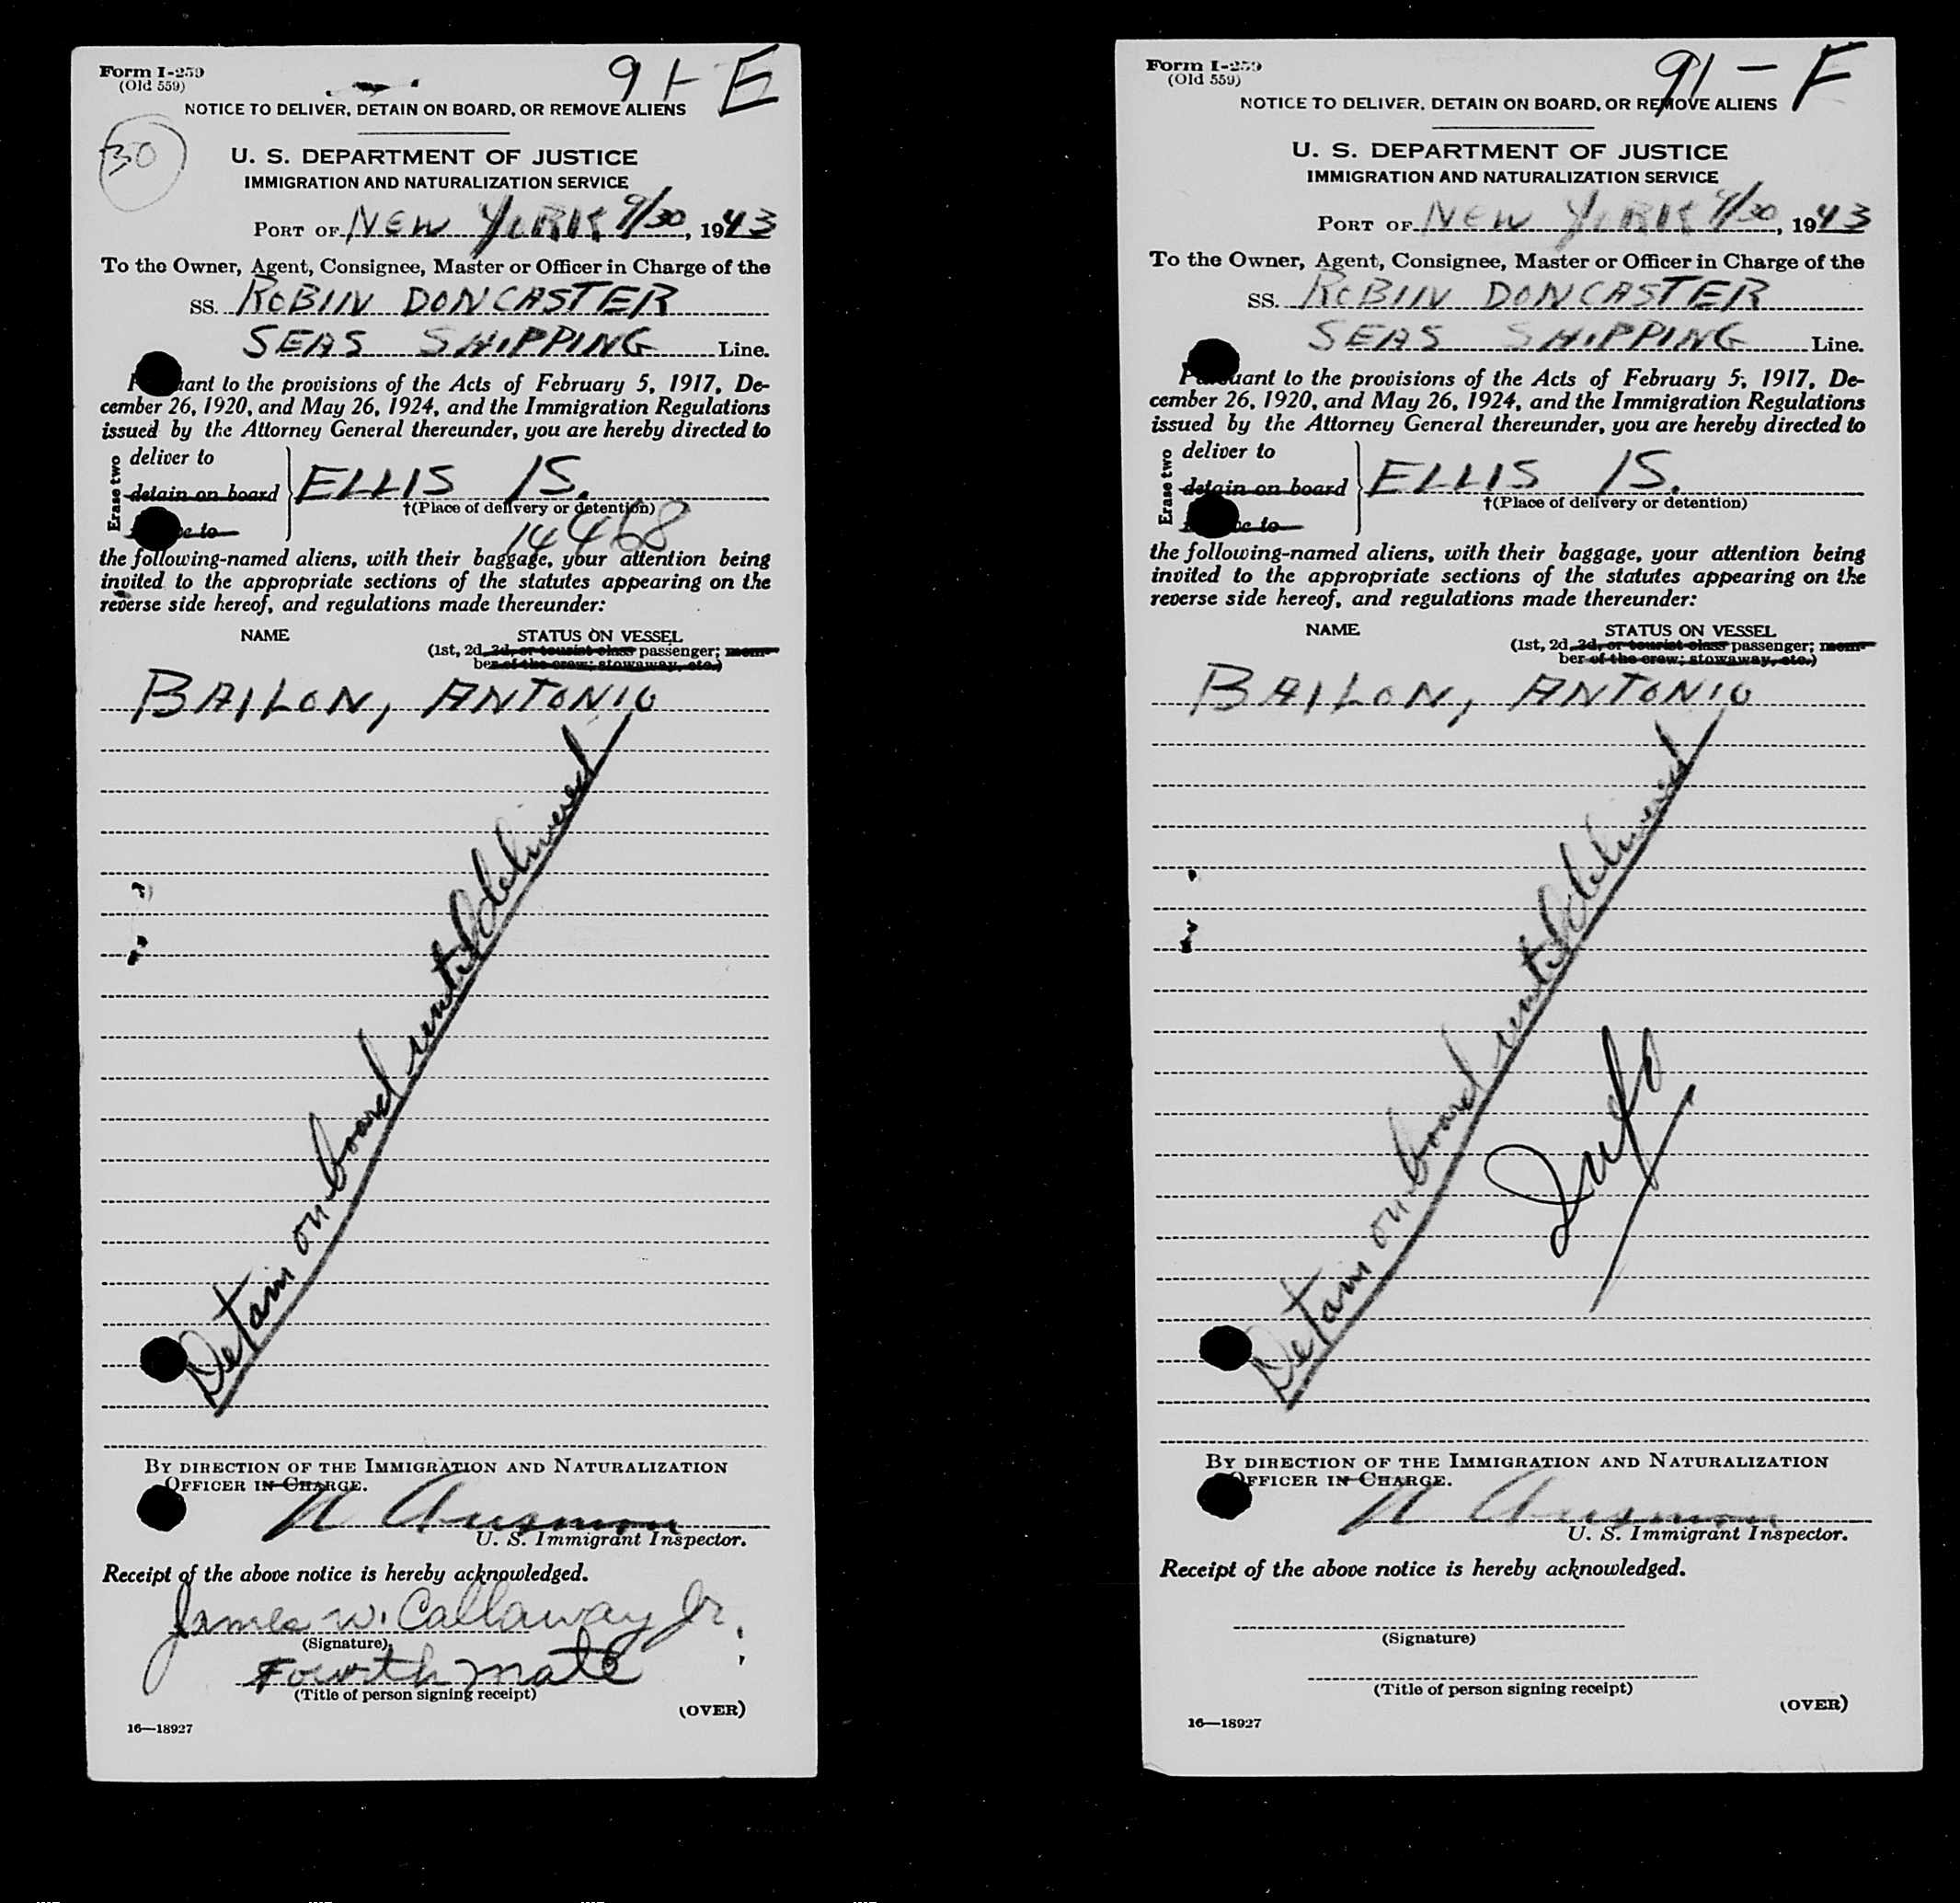 Form I-259
(Old 559)
91-E
NOTICE TO DELIVER, DETAIN ON BOARD, OR REMOVE ALIENS
30
U. S. DEPARTMENT OF JUSTICE
IMMIGRATION AND NATURALIZATION SERVICE
PORT OF NEW YORK 9/30, 1943
To the Owner, Agent, Consignee, Master or Officer in Charge of the
SS. ROBIN DONCASTER
SEAS SHIPPING Line.
ant to the provisions of the Acts of February 5, 1917, De-
cember 26, 1920, and May 26, 1924, and the Immigration Regulations
issued by the Attorney General thereunder, you are hereby directed to
Erase two
deliver to
detain on board ELLIS IS.
†(Place of delivery or detention)
e to
14468
the following-named aliens, with their baggage, your attention being
invited to the appropriate sections of the statutes appearing on the
reverse side hereof, and regulations made thereunder:
NAME STATUS ON VESSEL
(1st, 2d, 3d, or tourist class passenger; mem-
ber of the crew; stowaway, etc.)
BAILON, ANTONIO
Detain on board until delivered
BY DIRECTION OF THE IMMIGRATION AND NATURALIZATION
OFFICER IN CHARGE.
U. S. Immigrant Inspector.
Receipt of the above notice is hereby acknowledged.
James W. Callaway Jr.
(Signature)
Fourth Mate
(Title of person signing receipt)
(OVER)
16—18927
Form I-259
(Old 559)
91-F
NOTICE TO DELIVER, DETAIN ON BOARD, OR REMOVE ALIENS
U. S. DEPARTMENT OF JUSTICE
IMMIGRATION AND NATURALIZATION SERVICE
PORT OF NEW YORK 9/30, 1943
To the Owner, Agent, Consignee, Master or Officer in Charge of the
SS. ROBIN DONCASTER
SEAS SHIPPING Line.
Pursuant to the provisions of the Acts of February 5, 1917, De-
cember 26, 1920, and May 26, 1924, and the Immigration Regulations
issued by the Attorney General thereunder, you are hereby directed to
Erase two
deliver to
detain on board ELLIS IS.
†(Place of delivery or detention)
e to
the following-named aliens, with their baggage, your attention being
invited to the appropriate sections of the statutes appearing on the
reverse side hereof, and regulations made thereunder:
NAME STATUS ON VESSEL
(1st, 2d, 3d, or tourist class passenger; mem-
ber of the crew; stowaway, etc.)
BAILON, ANTONIO
Detain on board until delivered
Info
BY DIRECTION OF THE IMMIGRATION AND NATURALIZATION
OFFICER IN CHARGE.
U. S. Immigrant Inspector.
Receipt of the above notice is hereby acknowledged.
(Signature)
(Title of person signing receipt)
(OVER)
16—18927